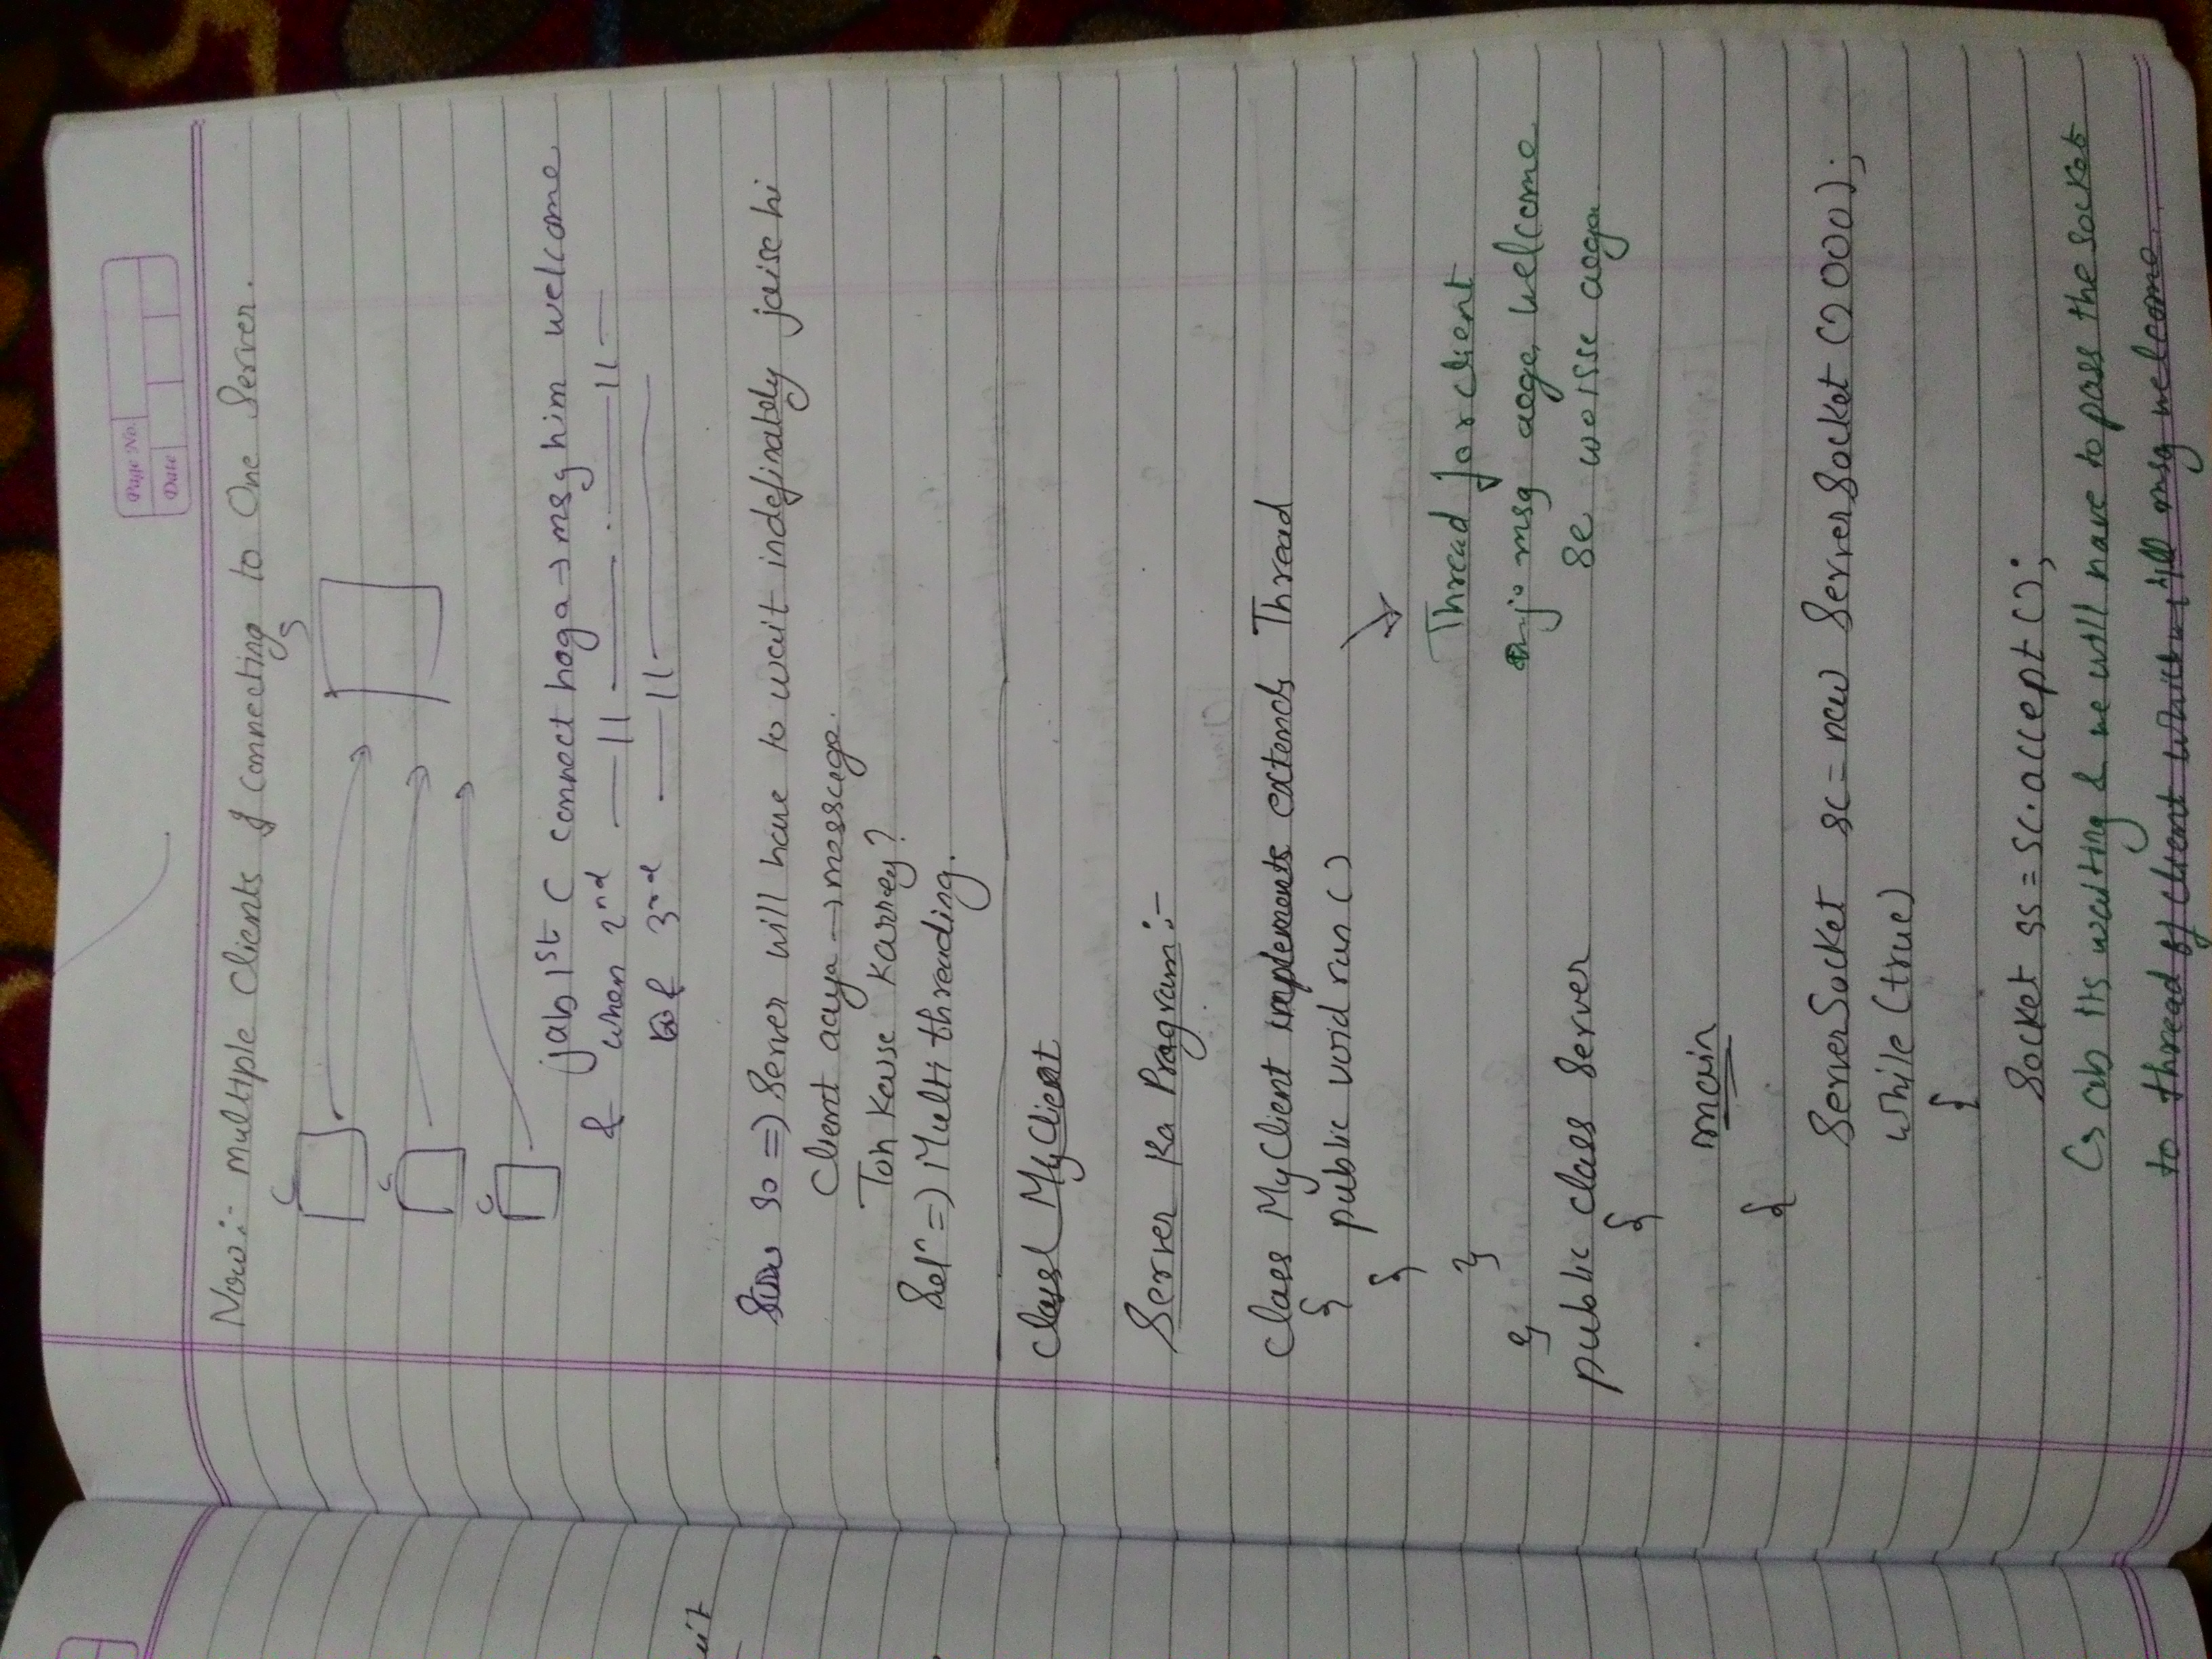 Page No.
Date
Now:- multiple Clients & connecting to One Server.
C
S
C
C
jab 1st C connect hoga → msg him welcome
& when 2nd —||— — —||—
& 3rd —||—
So => Server will have to wait indefinately jaise hi
Client aaya → message.
Toh Kaise Karney?
Sol^n => Multi threading.
Class MyClient
Server Ka Program:-
Class MyClient implements extends Thread
{ public void run()
{
}
}
Thread for client
jo msg aega welcome
se woisse aega
public class Server
{
main
{
ServerSocket sc = new ServerSocket (2000);
while (true)
{
Socket ss = sc.accept();
↳ ab its waiting & we will have to pass the socket
to thread of client which will msg welcome.
uit